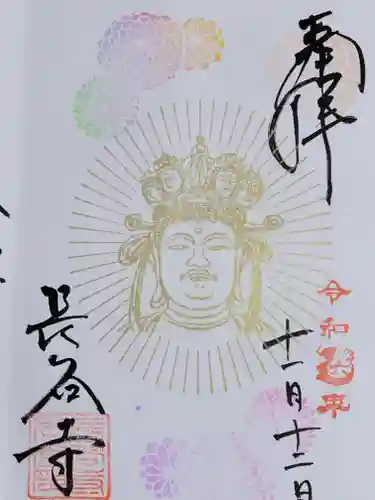 奉拝
令和
年
十一月十二日
長谷寺